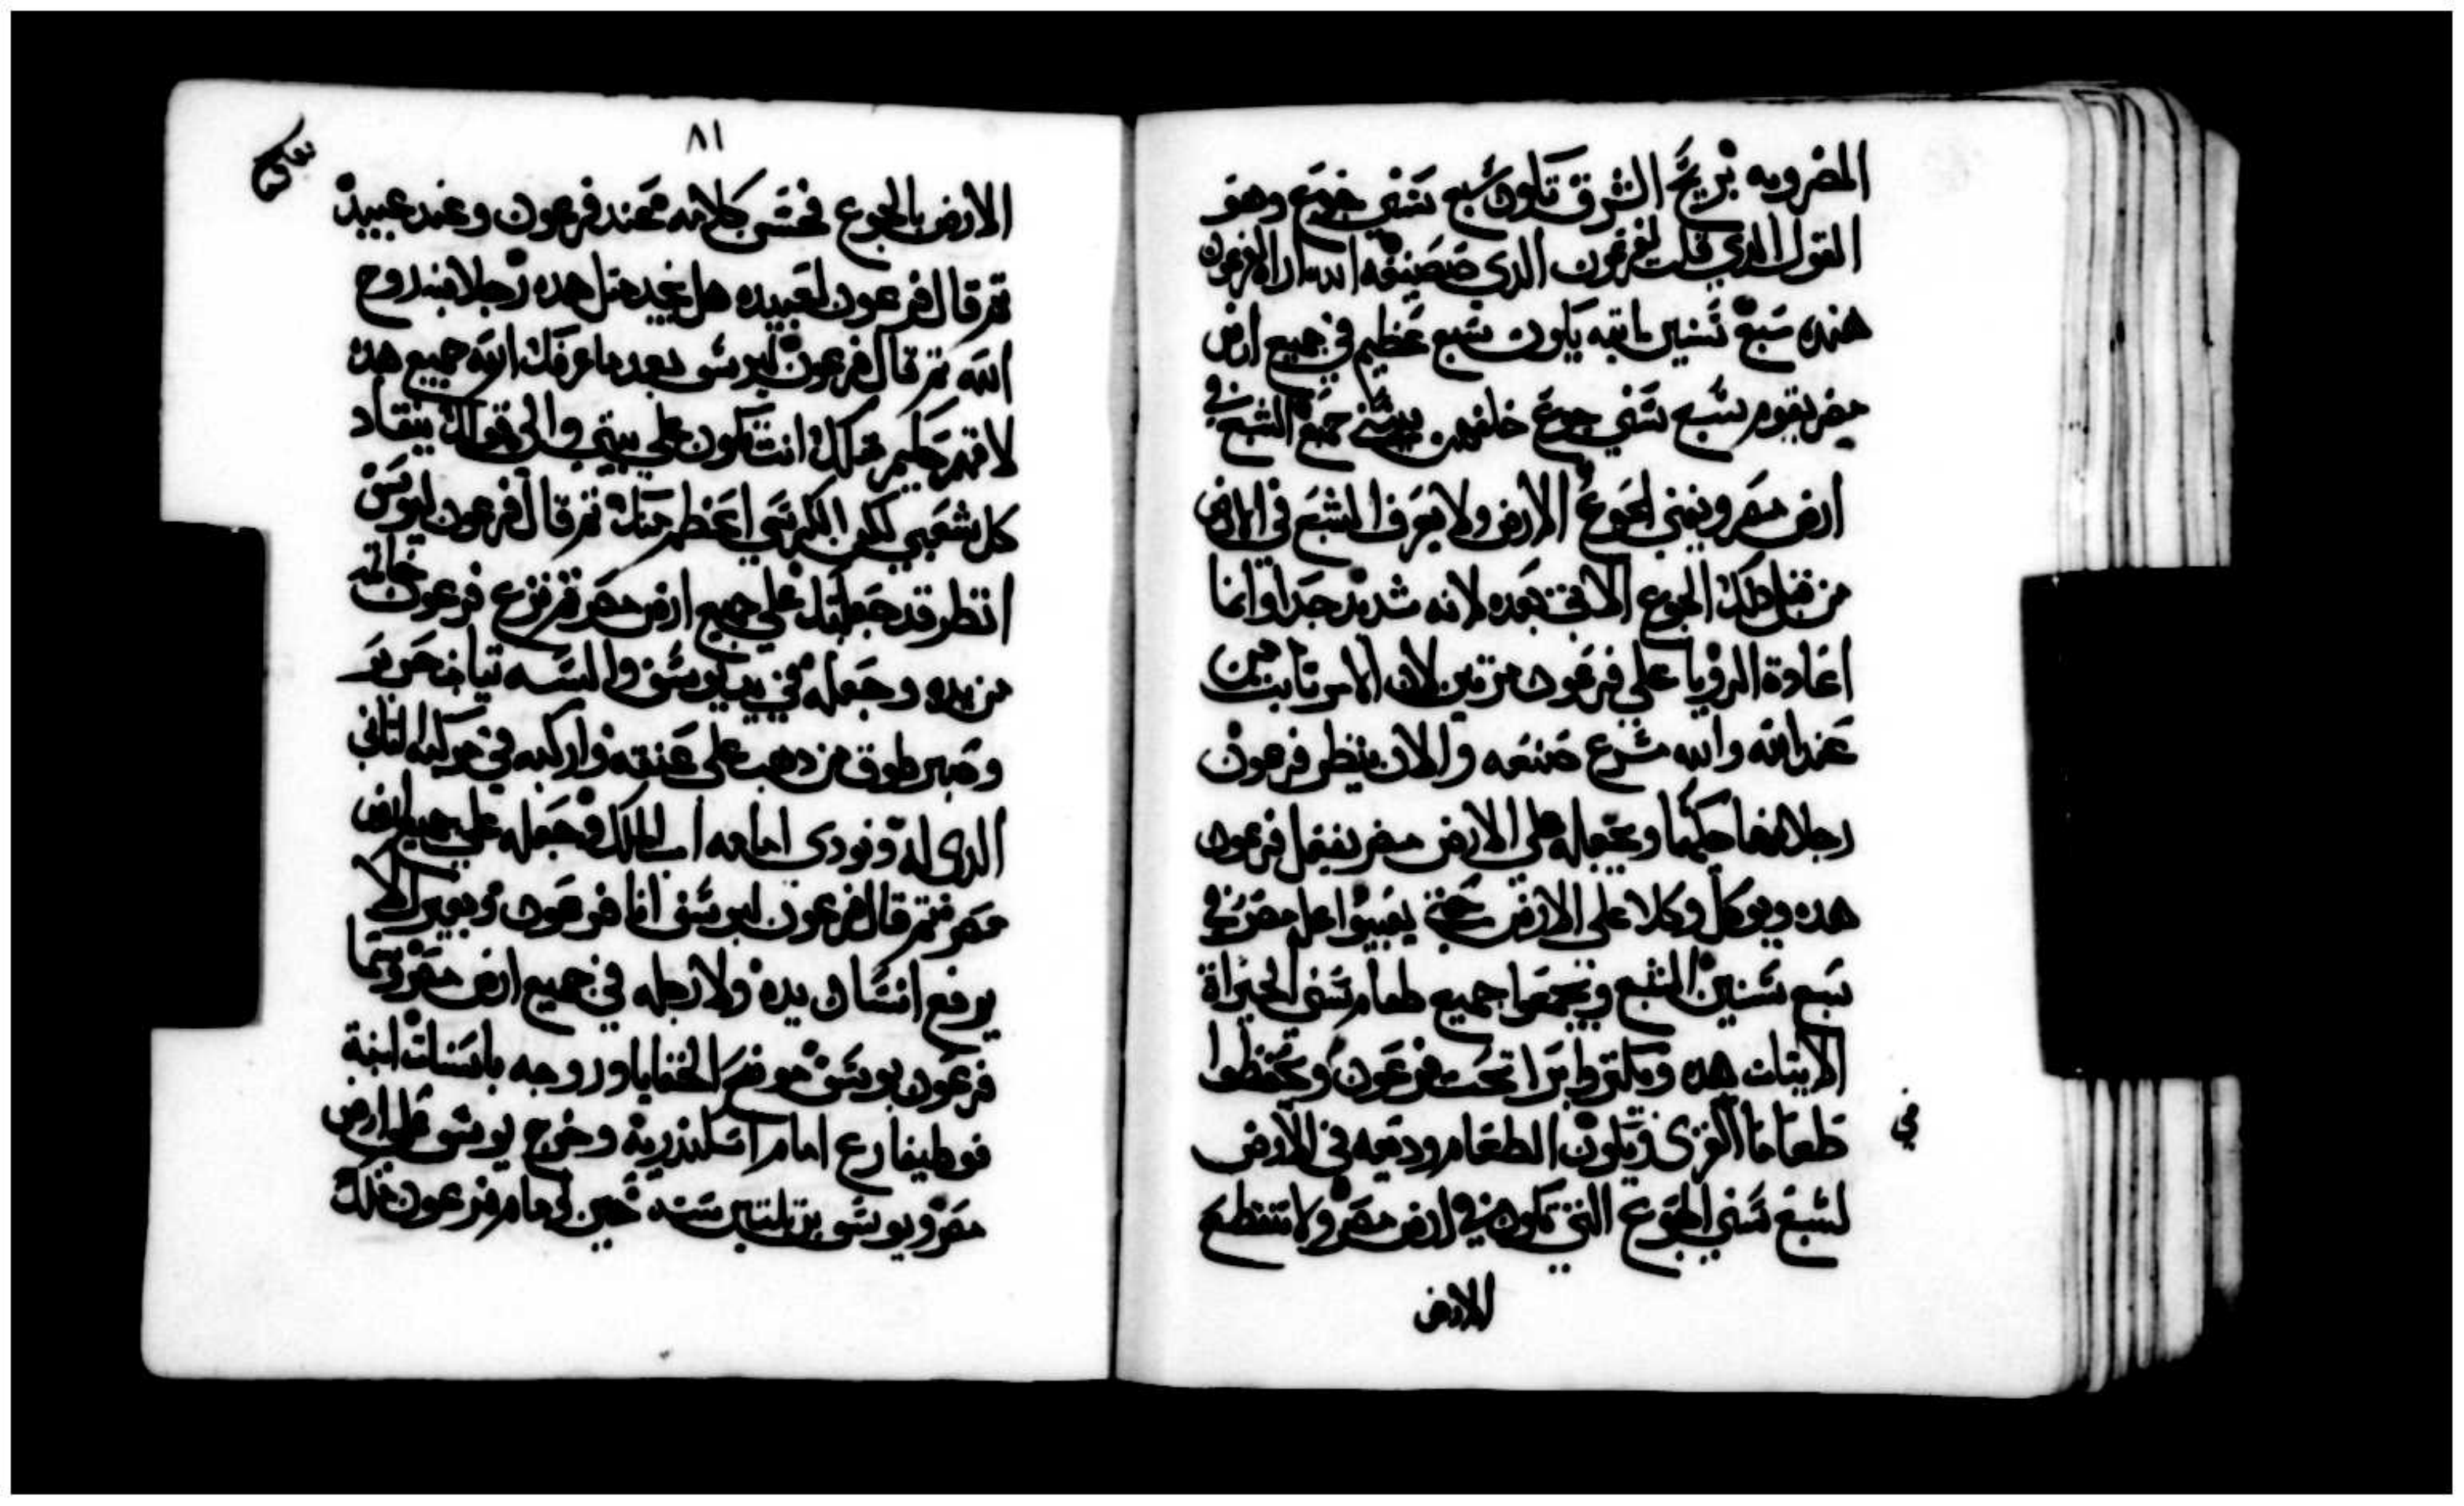 المضروبه بريح الشرق تكون سبع سني جوع وهو
القول الذي قلت لفرعون الذي صصنعه الله اراه لفرعون
هنده سبع سنين ماتيه يكون شبع عظيم في جميع ارض
مصر يقوم سبع سني جوع خلفهن جميع الشبع في
ارض مصر ويفني الجوع الارض ولا يعرف الشبع في الارض
من قبل دلك الجوع الاتي بعده لانه شديد جدا وانما
اعادة الرويا علي فرعون مرتين لان الامر تابت من
عند الله والله مسرع صنعه والان ينظر فرعون
رجلا فهما حكيما ويجعله علي الارض مصر يفعل فرعون
هده ويوكل وكلا علي الارض يعبيوا علي مصر في
سبع سنين الشبع ويجمعوا جميع طعام سني الخيراة
الاتيات هده ويكنزوا برا تحت فرعون ويحفظوا
طعاما القري ويكون الطعام وديعه في الارض
في
لسبع سني الجوع التي تكون في ارض مصر ولا تنقطع
للارض
٨١
الارض بالجوع فحسن كلامه عند فرعون وعند عبيده
تم قال فرعون لعبيده هل نجد متل هده رجلا فيه روح
الله تم قال فرعون ليوسف بعد ما عرفك الله جميع هده
لا فهم حكيم متلك انت تكون علي بيتي والي قولك ينقاد
كل شعبي لكن الكرسي اعظم منك تم قال فرعون ليوسف
انظر قد جعلتك علي جميع ارض مصر تم نزع فرعون خاتمه
من يده وجعله في يد يوسف والبسه تياب حرير
وصير طوق من دهب علي عنقه واركبه في مركبه التاني
الدي له ونودي امامه اب الملك وجعله علي جميع ارض
مصر تم قال فرعون ليوسف انا فرعون وبغير امرك لا
يرفع انسان يده ولا رجله في جميع ارض مصر وسما
فرعون يوسف موضح الخفايا وزوجه باسنات ابنة
فوطيفارع امام اسكندرية وخرج يوسف علي ارض
مصر ويوسف بن تلتين سنه حين قام امام فرعون ملك